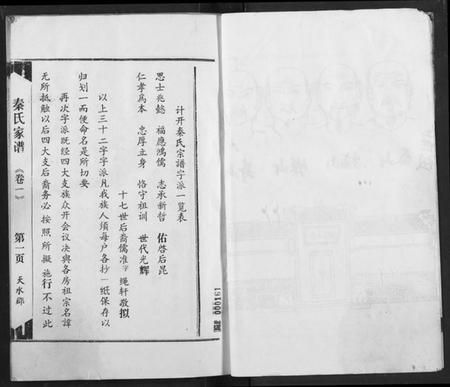 计开秦氏宗谱字派一览表
思士兆懿　福应鸿儒　志承新哲　佑啓后昆
仁孝为本　忠厚立身　恪守祖训　世代光辉
十七世后裔儒准字绳轩敬拟
以上三十二字字派凡我族人须每户各抄一纸保存以
归划一而使命名是所切要
再次字派既经四大支族众开会议决与各房祖宗名諱
无所抵触以后四大支后裔务必按照所拟施行不过此
秦氏家谱
《卷一》
第一页
天水郡
000161